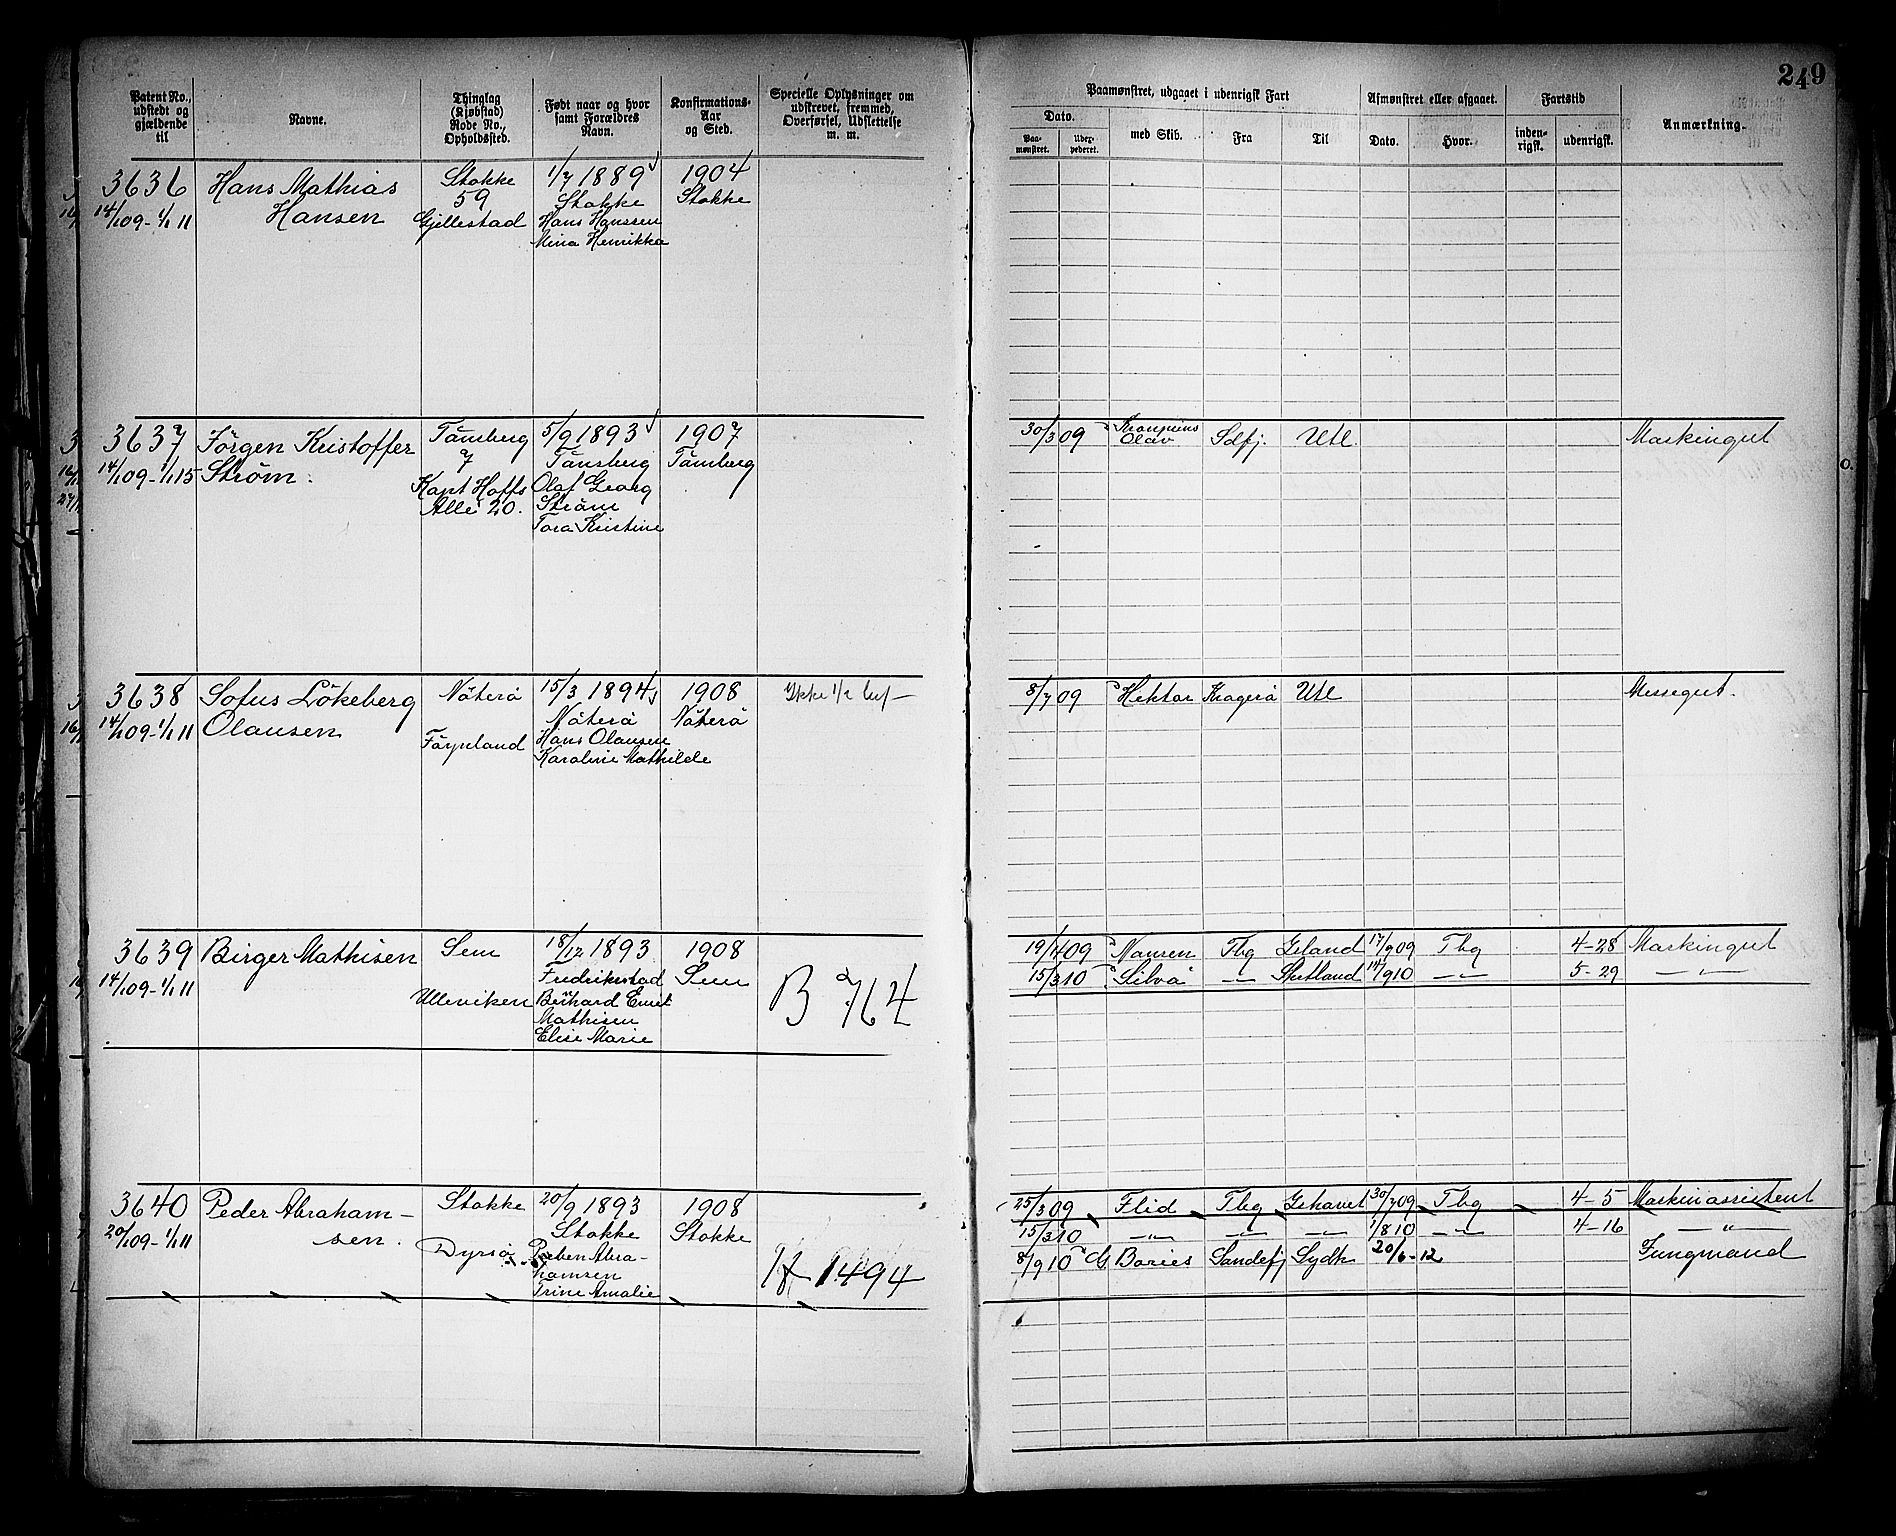 249
Patent No., udstedt og gjældende til
Navne.
Thinglag (Kjøbstad) Rode No., Opholdssted.
Født naar og hvor samt Forældres Navn.
Konfirmations-Aar og Sted.
Specielle Oplysninger om udskrevet, fremmed, Overførsel, Udslettelse m. m.
Paamønstret, udgaaet i udenrigsk Fart
Dato.
Paa-mønstret.
med Skib.
Fra
Til
Afmønstret eller afgaaet.
Dato.
Hvor.
Fartstid
inden-rigsk.
udenrigsk.
Anmærkning.
3636 Hans Mathias Stokke 1/7 1889 1904
14/1 09-1/1 11 Hansen 59 Stokke Stokke
Gjillestad Hans Hanssen
Mina Henrikka
3637 Jörgen Kristoffer Tönsberg 5/9 1893 1907 30/3 09 Olav Utl. Maskingut
14/1 09-1/1 15 Ström. 7 Tönsberg Tönsberg
Kapt Hoffs Olaf Georg
Allé 20. Ström
Tora Kristine
3638 Sofus Lökeberg Nöterö 15/3 1894 1908 8/7 09 Hektor Kragerö Utl Messegut.
14/1 09-1/1 11 Olausen Nöterö Nöterö
Föynland Hans Olausen
Karoline Mathilde
3639 Birger Mathisen Sem 18/12 1893 1908 19/4 09 Nansen Tbg Island 17/9 09 Tbg 4-28 Maskingut
14/1 09-1/1 11 Fredrikstad Sem B 764 15/3 10 Silva -"- Shetland 14/9 10 -"- 5-29 -"-
Ulleviken Mathisen
Elise Marie
3640 Peder Abraham- Stokke 20/9 1893 1908 25/3 09 Flid Tbg Ishavet 30/7 09 Tbg 4-5 Maskinassistent
20/1 09-1/1 11 sen. Stokke Stokke 15/3 10 -"- -"- -"- 1/8 10 -"- 4-16 -"-
8/9 10 Bories Sandefj Sydh 20/6-12 Jungmand
hamsen 1494
Trine Amalie